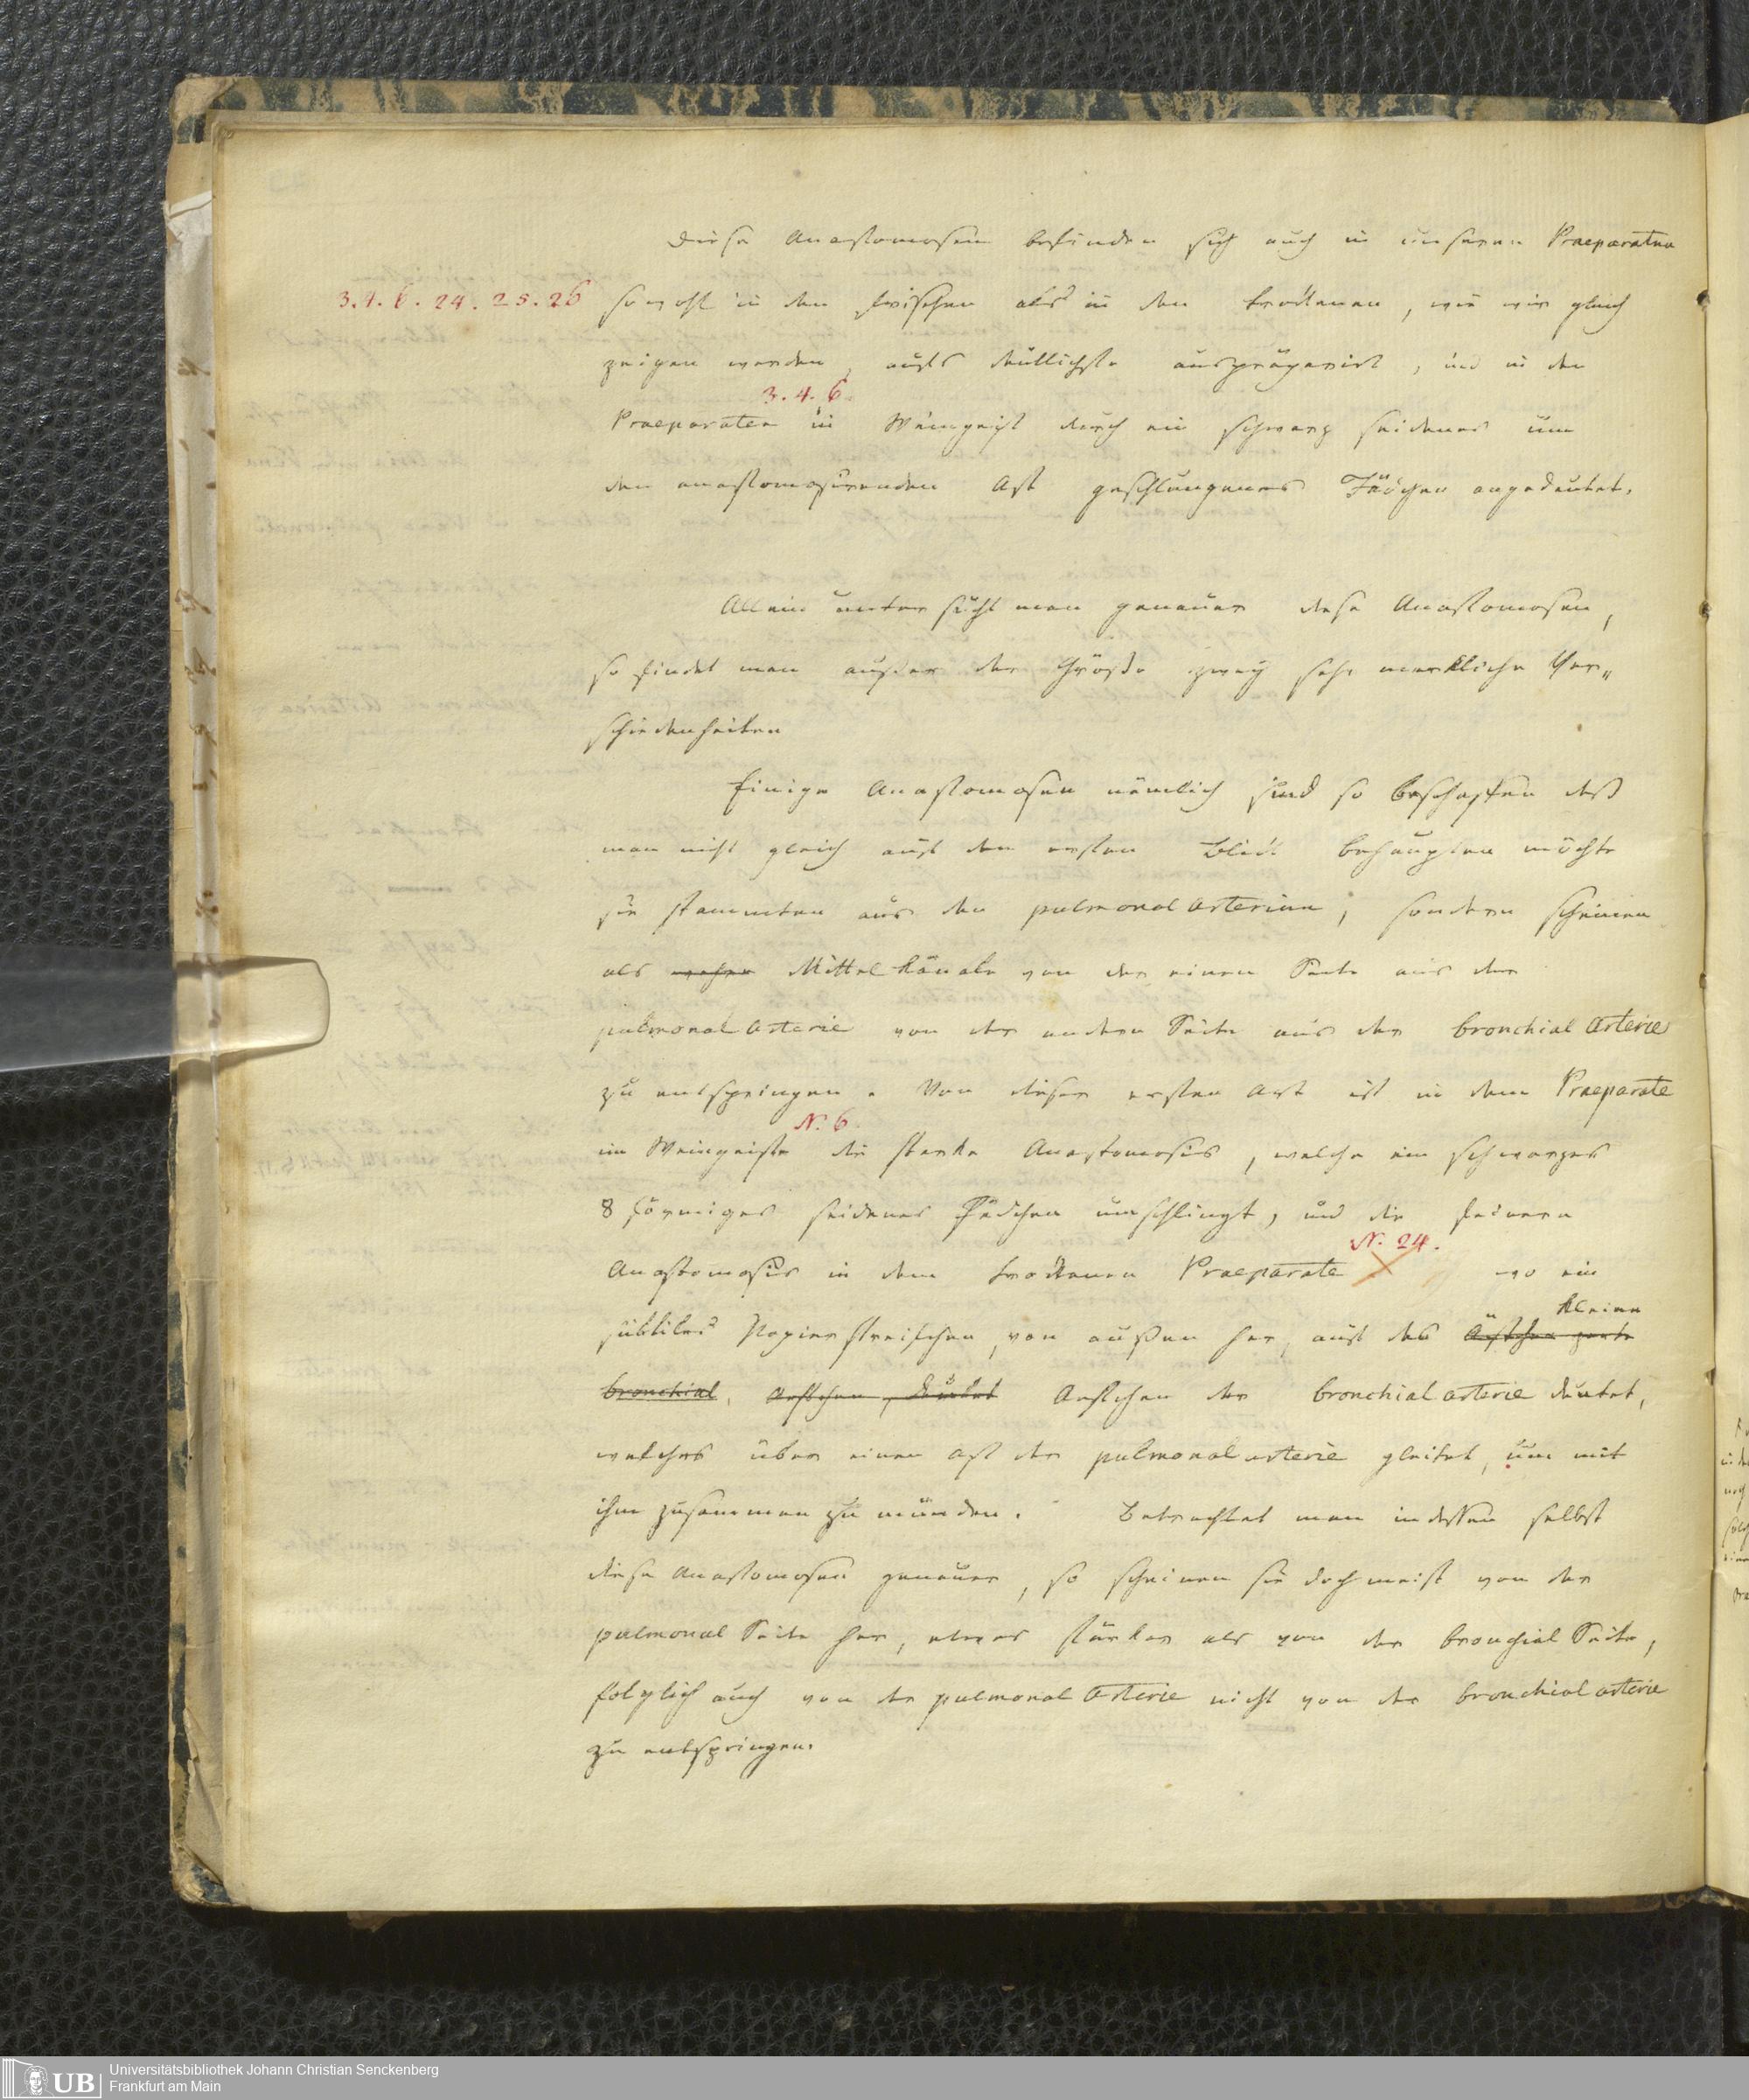 Diese Anastomosen befinden sich auch in unseren Praeparaten
3. 4. 6. 24. 25. 26 sowohl in den frischen als in den trockenen, wie wir gleich
zeigen werden, aufs deutlichste auspräparirt, und in den
3. 4. 6.
Praeparaten in Weingeist durch ein schwarz seidenes um
den anastomosirenden Ast geschlungenes Fädchen angedeutet.
Allein untersucht man genauer diese Anastomosen,
so findet man außer der Größe zwey sehr merkliche Ver„
schiedenheiten
Einige Anastomosen nämlich sind so beschaffen daß
man nicht gleich auf den ersten Blick behaupten möchte
sie stammten aus den pulmonal arterien; sondern scheinen
als wahre Mittel Kanäle von der einen Seite aus der
pulmonal Arterie von der andern Seite aus der bronchial Arterie
zu entspringen. Von dieser ersten Art ist in dem Praeparate
N. 6.
im Weingeiste die starke Anastomosis, welche ein schwarzes
8 förmiges seidenes Fädchen umschlingt, und die feinere
N. 24.
Anastomosis in dem trockenen Praeparate wo ein
kleine
subtiles Papierstreifchen, von außen her, auf das Ästchen zarte
bronchial Aestchen, deutet Aestchen der bronchial arterie deutet,
welches über einen Ast der pulmonal arterie gleitet, um mit
ihm zusammen zu münden. Betrachtet man indessen selbst
diese Anastomosen genauer, so scheinen sie doch meist von der
pulmonal Seite her, etwas stärker als von der bronchial Seite,
folglich auch von der pulmonal Arterie nicht von der bronchial arterie
zu entspringen.
UB
Universitätsbibliothek Johann Christian Senckenberg
Frankfurt am Main